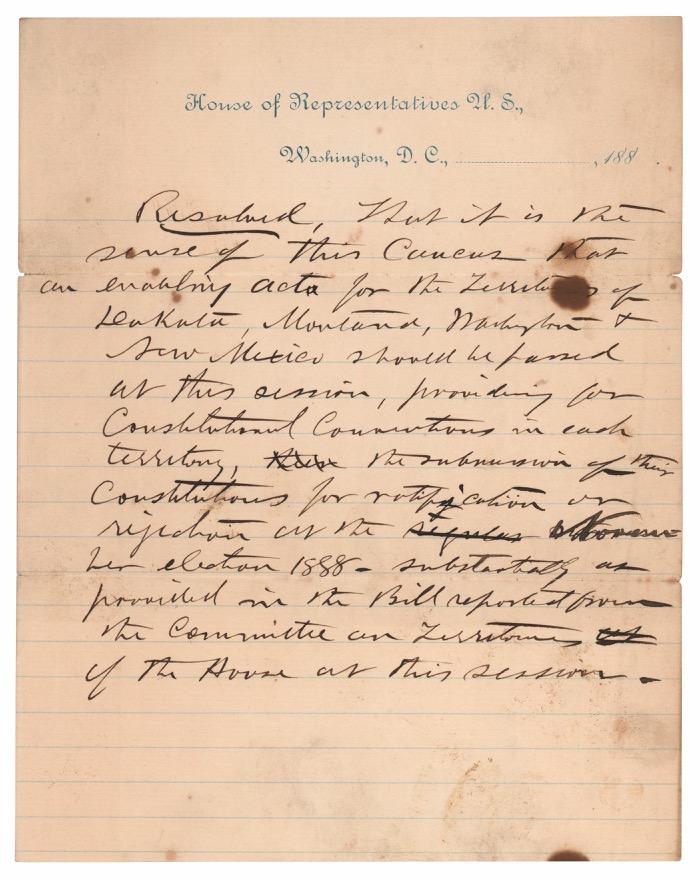 House of Representatives U. S.,
Washington, D. C., ..............................., 188 .
Resolved, That it is the
sense of this Caucus that
an enabling act for the Territories of
Dakota, Montana, Washington &
New Mexico should be passed
at this session, providing for
Constitutional Conventions in each
territory, the submission of their
Constitutions for ratification or
rejection at the regular Novem-
ber election 1888 - substantially as
provided in the Bill reported from
the Committee on Territories
of the House at this session.